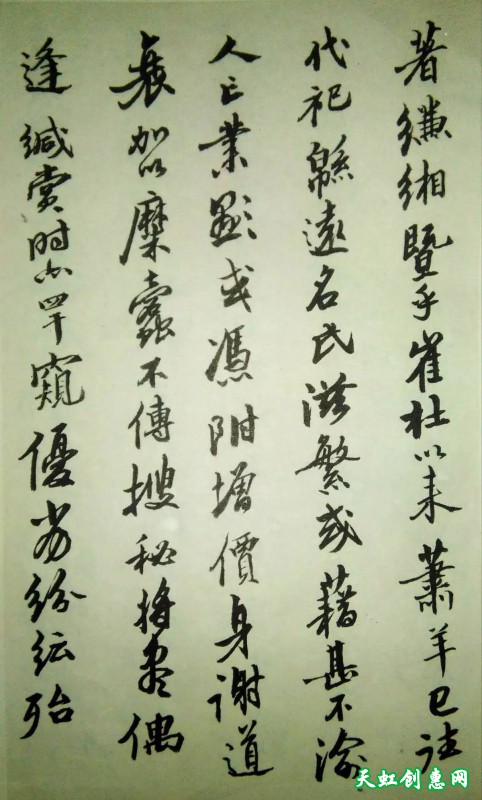 著縑緗暨乎崔杜以来蕭羊已往
代祀緜遠名氏滋繁或藉甚不渝
人亡業顯或憑附增價身謝道
衰加以糜蠹不傳搜秘将盡偶
逢緘賞时亦罕窺優劣紛紜殆
天虹创惠网